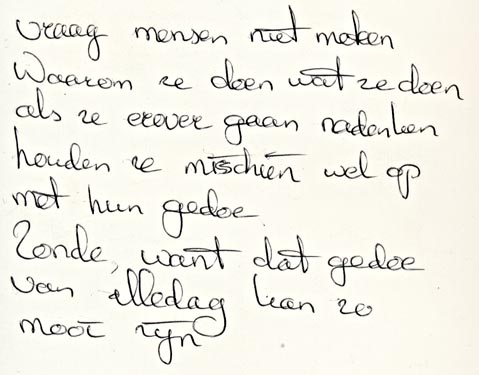 vraag mensen niet meken
Waarom ze doen wat ze doen
als ze erover gaan nadenken
houden ze misschien wel op
met hun gedoe.
Zonde, want dat gedoe
van alledag kan zo
mooi zijn